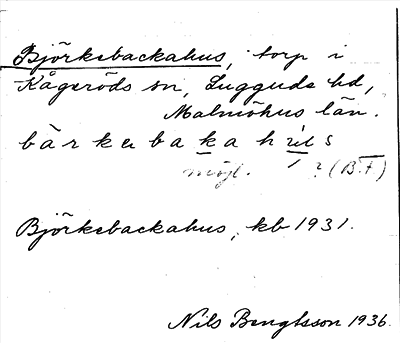 Björkebackahus, torp i
Kågeröds sn, Luggude hd,
Malmöhus län.
bàrkebakahus
möjl. ? (B.F)
Björkebackahus, kb 1931.
Nils Bengtsson 1936.